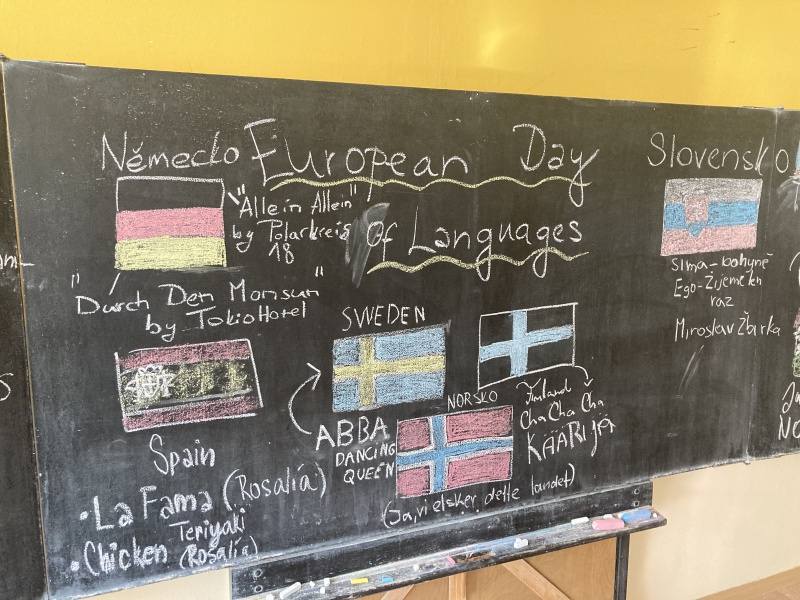 European Day
Of Languages
Německo
"Allein Allein"
by Polarkreis
18
"Durch Den Monsun"
by Tokio Hotel
Spain
• La Fama (Rosalía)
• Chicken Teriyaki
(Rosalía)
SWEDEN
ABBA
DANCING
QUEEN
NORSKO
(Ja, vi elsker dette landet)
Finland
Cha Cha Cha
KÄÄRIJÄ
Slovensko
Sima - bohyně
Ego - Žijeme len
raz
Miroslav Žbirka